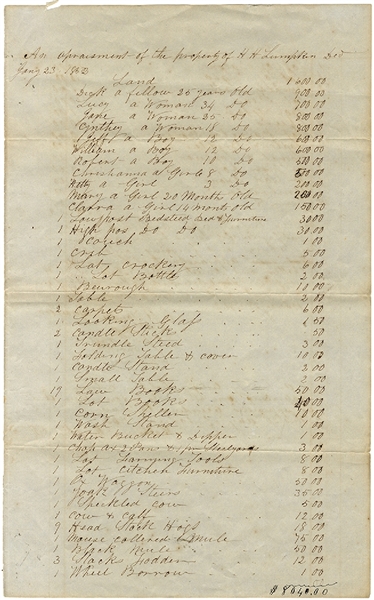 An apraisment of the property of H H Lumpkin Decd
Jany 23 1853
Land 1600.00
Dick a fellow 25 years old 900.00
Lucy a Woman 34 Do 700.00
Jane a Woman 25 Do 800.00
Cynthey a Woman 18 Do 800.00
Jeff a Boy 13 Do 650.00
William a Boy 12 Do 600.00
Robert a Boy 10 Do 500.00
Chrishanna a Girl 8 Do 500.00
Kitty a Girl 3 Do 300.00
Mary a Girl 20 Month Old 200.00
Clarra a Girl 14 month old 150.00
1 Low post Bedsteed Bed & furniture 30.00
1 High pos Do Do 30.00
1 Couch 1.00
1 Crib 5.00
1 Lot, Crockery 6.00
1 Lot Bottle 2.00
1 Beurough 10.00
1 Table 2.00
2 Carpet 6.00
1 Looking Glass 1.50
2 Candle Stick .50
1 Trundle Steed 3.00
1 Folding Table & cover 10.00
1 Candle Stand 2.00
1 Small Table 2.00
19 Law Books 50.00
1 Lot Books 20.00
1 Corn Sheller 10.00
1 Wash Stand 1.00
1 Water Bucket & Dipper 1.00
1 Steelyards 3.00
1 Lot Farming Tools 8.00
1 Lot Citchen Furniture 8.00
1 Ox Waggon 50.00
1 Yoak Steirs 35.00
1 Speckled Cow 5.00
1 Cow & Calf 12.00
9 Head Stock Hogs 18.00
1 Mouse collered Mule 75.00
1 Black Mule 50.00
3 Stacks Fodder 12.00
1 Wheel Borrow 1.00
$8640.00